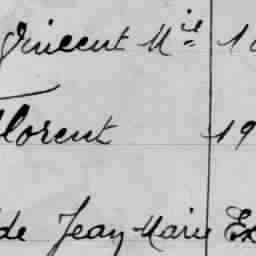 Vincent Mie 10
Florent 19
de Jean Marie Ex